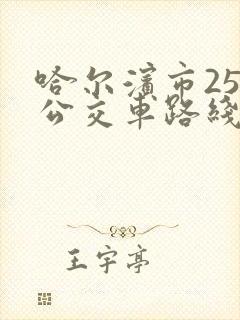 哈尔滨市25
公交车路线
王宇亭